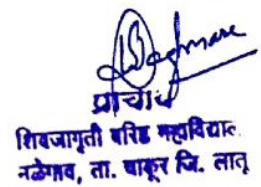 प्राचार्य
शिवजागृती वरिष्ठ महाविद्याल
नळेगाव, ता. चाकूर जि. लातू